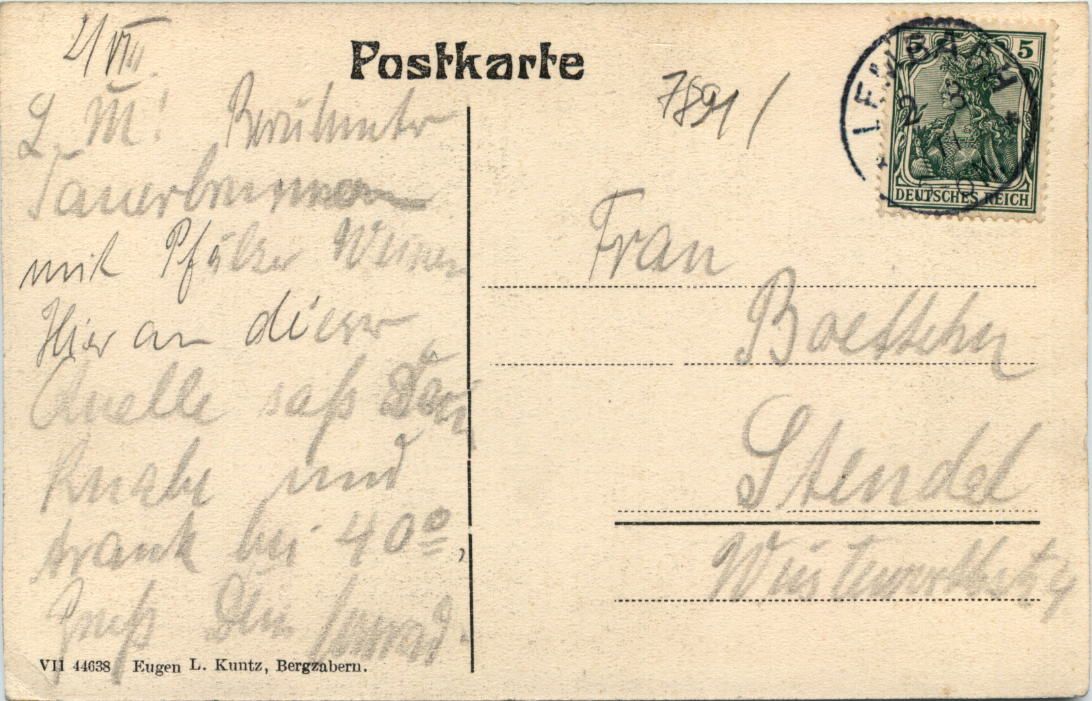 2/VIII.
L. M! Berühmter
Sauerbrunnen
mit Pfälzer Weinen
Hier an dieser
Quelle saß Dein
Knabe und
trank bei 40°,
Gruß Dein Conrad.
VII 44638 Eugen L. Kuntz, Bergzabern.
Postkarte
7891/
5
LEMBACH
2 8
DEUTSCHES REICH
Frau
Boettcher
Stendal